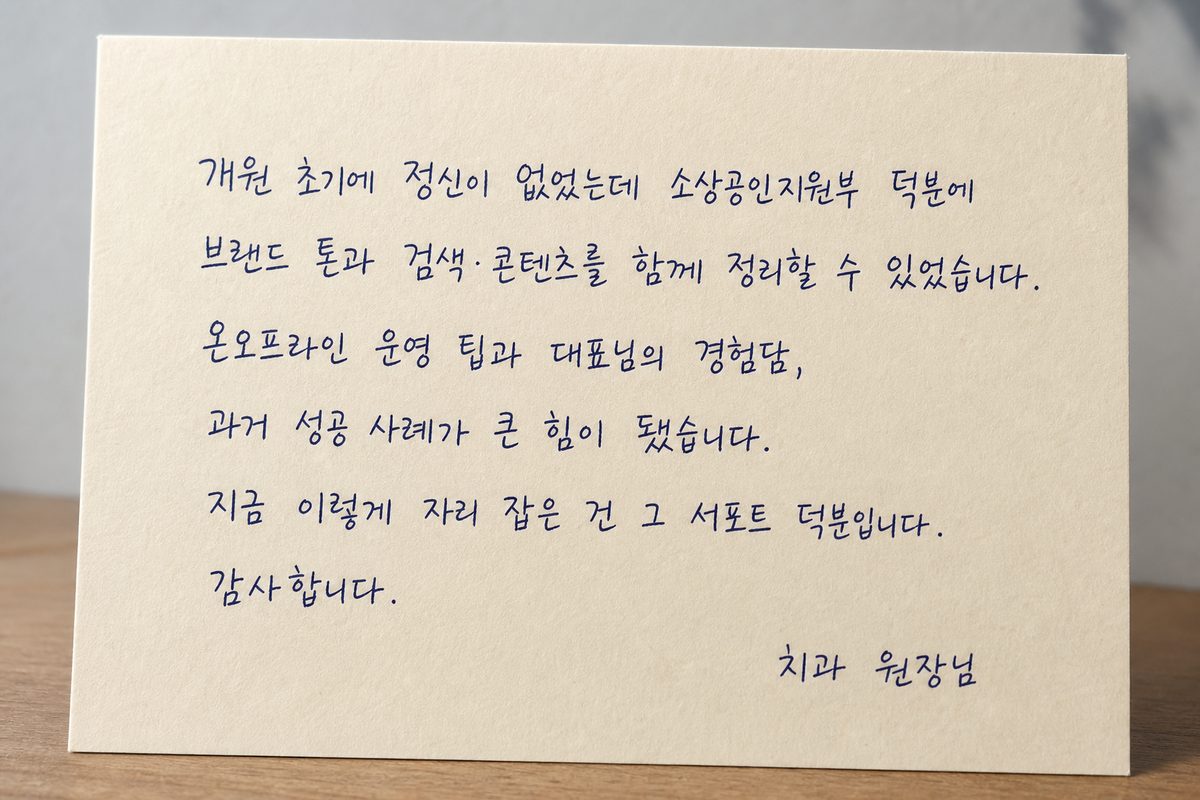 개원 초기에 정신이 없었는데 소상공인지원부 덕분에
브랜드 톤과 검색·콘텐츠를 함께 정리할 수 있었습니다.
온오프라인 운영 팁과 대표님의 경험담,
과거 성공 사례가 큰 힘이 됐습니다.
지금 이렇게 자리 잡은 건 그 서포트 덕분입니다.
감사합니다.
치과 원장님